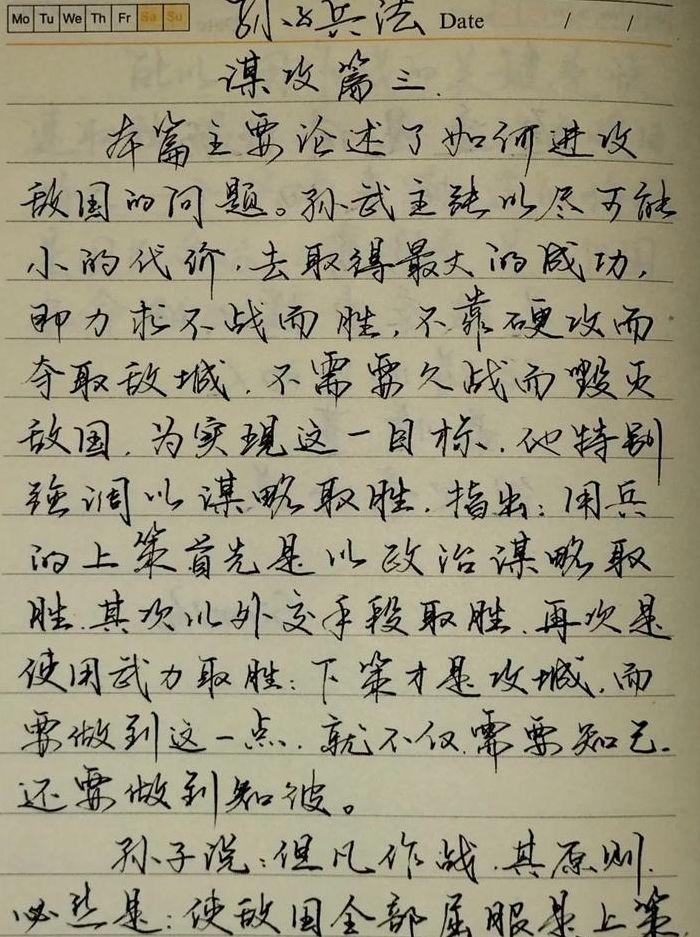 Mo Tu We Th Fr Sa Su 孙子兵法 Date / /
谋攻篇三.
本篇主要论述了如何进攻
敌国的问题。孙武主张以尽可能
小的代价,去取得最大的成功,
即力求不战而胜,不靠硬攻而
夺取敌城,不需要久战而毁灭
敌国,为实现这一目标,他特别
强调以谋略取胜,指出:用兵
的上策首先是以政治谋略取
胜,其次以外交手段取胜,再次是
使用武力取胜;下策才是攻城,而
要做到这一点,就不仅需要知己,
还要做到知彼。
孙子说:但凡作战,其原则,
必然是:使敌国全部屈服是上策,